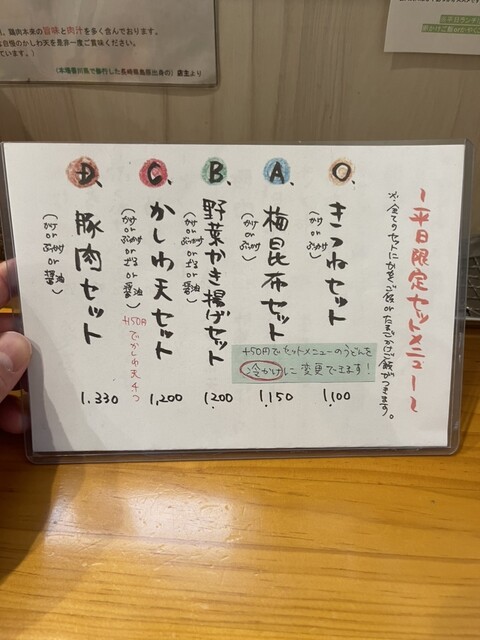 、鶏肉本来の旨味と肉汁を多く含んでおります。
自慢のかしわ天を是非一度ご賞味ください。
ています。)
(本場香川県で修行した長崎県島原出身の)店主より
~平日限定セットメニュー~
※全てのセットにかやくご飯orたまごかけご飯がつきます。
O、
きつねセット
(かけ or ぶっかけ)
1,100
A、
梅昆布セット
(かけ or ぶっかけ)
1,150
B、
野菜かき揚げセット
(かけ or ぶっかけ or ざる or 醤油)
1,200
C、
かしわ天セット
(かけ or ぶっかけ or ざる or 醤油)
+150円でかしわ天4つ
1,200
D、
豚肉セット
(かけ or ぶっかけ or 醤油)
1,330
+50円でセットメニューのうどんを
冷かけに変更できます!